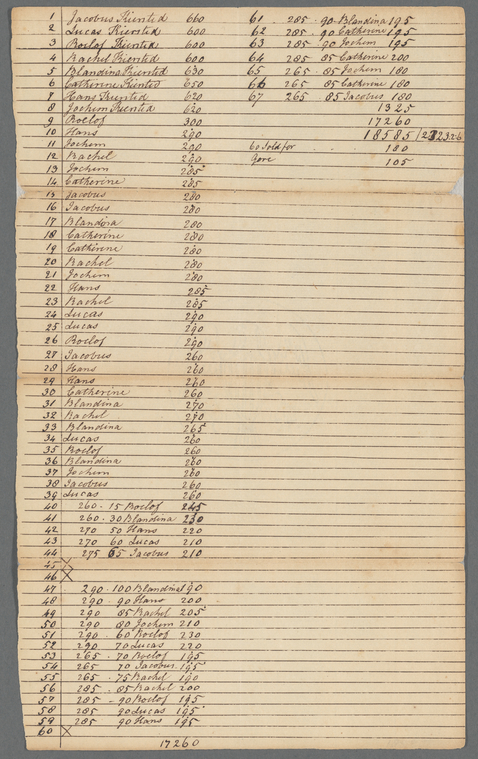 1 Jacobus Kiersted 660
2 Lucas Kiersted 600
3 Roelof Kiersted 600
4 Rachel Kiersted 600
5 Blandina Kiersted 630
6 Catherine Kiersted 650
7 Hans Kiersted 620
8 Jochem Kiersted 620
9 Roelof 300
10 Hans 290
11 Jochem 290
12 Rachel 290
13 Jochem 285
14 Catherine 285
15 Jacobus 280
16 Jacobus 280
17 Blandina 280
18 Catherine 280
19 Catherine 280
20 Rachel 280
21 Jochem 280
22 Hans 285
23 Rachel 285
24 Lucas 290
25 Lucas 290
26 Roelof 290
27 Jacobus 260
28 Hans 260
29 Hans 260
30 Catherine 260
31 Blandina 270
32 Rachel 270
33 Blandina 265
34 Lucas 260
35 Roelof 260
36 Blandina 260
37 Jochem 260
38 Jacobus 260
39 Lucas 260
40 260 - 15 Roelof 245
41 260 - 30 Blandina 230
42 270 50 Hans 220
43 270 60 Lucas 210
44 275 65 Jacobus 210
45 X
46 X
47 290 - 100 Blandina 190
48 290 - 90 Hans 200
49 290 85 Rachel 205
50 290 80 Jochem 210
51 290 - 60 Roelof 230
52 290 70 Lucas 220
53 265 - 70 Roelof 195
54 265 70 Jacobus 195
55 265 - 75 Rachel 190
56 285 - 85 Rachel 200
57 285 - 90 Roelof 195
58 285 90 Lucas 195
59 285 90 Hans 195
60 X
17260
61 - 285 - 90 - Blandina 195
62 285 - 90 Catherine 195
63 285 90 Jochem 195
64 285 85 Catherine 200
65 265 - 85 Jochem 180
66 265 85 Catherine 180
67 265 85 Jacobus 180
1325
17260
18585
60 Sold for 180
Gore 105